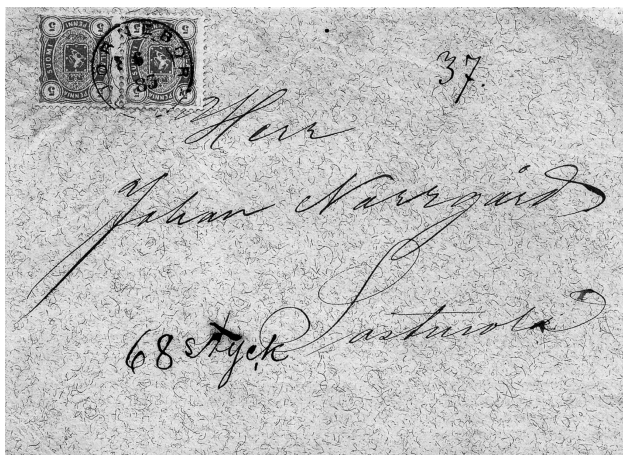 5 5 5 5
SUOMI
PENNIÄ
BJÖRNEBORG
83
37.
Herr
Johan Norrgård
Sastmola
68 styck